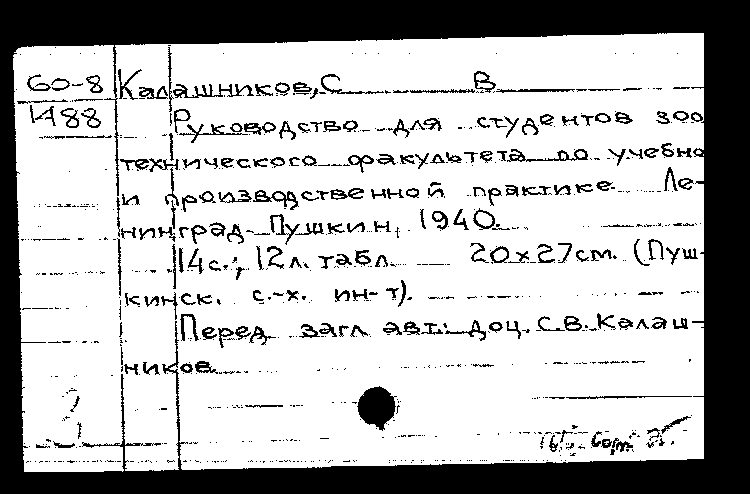 60-8 Калашников, С В
1488 Руководство для студентов зоо
технического факультета по учебно
и производственной практике. Ле-
нинград-Пушкин, 1940.
14с.; 12л. табл. 20x27см. (Пуш-
кинск. с.-х. ин-т).
Перед загл авт.: доц. С.В. Калаш-
ников.